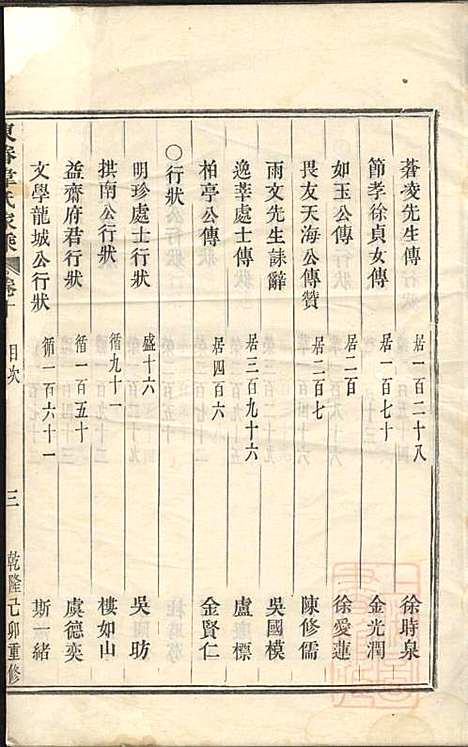 蒼凌先生傳 居一百二十八 徐時泉
節孝徐貞女傳 居一百七十 金光潤
如玉公傳 居二百 徐愛蓮
畏友天海公傳贊 居二百七 陳修儒
雨文先生誄辭 吳國模
逸莘處士傳 居三百九十六 盧標
柏亭公傳 居四百六 金賢仁
○行狀
明珍處士行狀 盛十六 吳昉
拱南公行狀 循九十一 樓如山
益齋府君行狀 循一百五十 虞德奕
文學龍城公行狀 循一百六十一 斯一緒
氏家乘 卷 目次 三 乾隆己卯重修